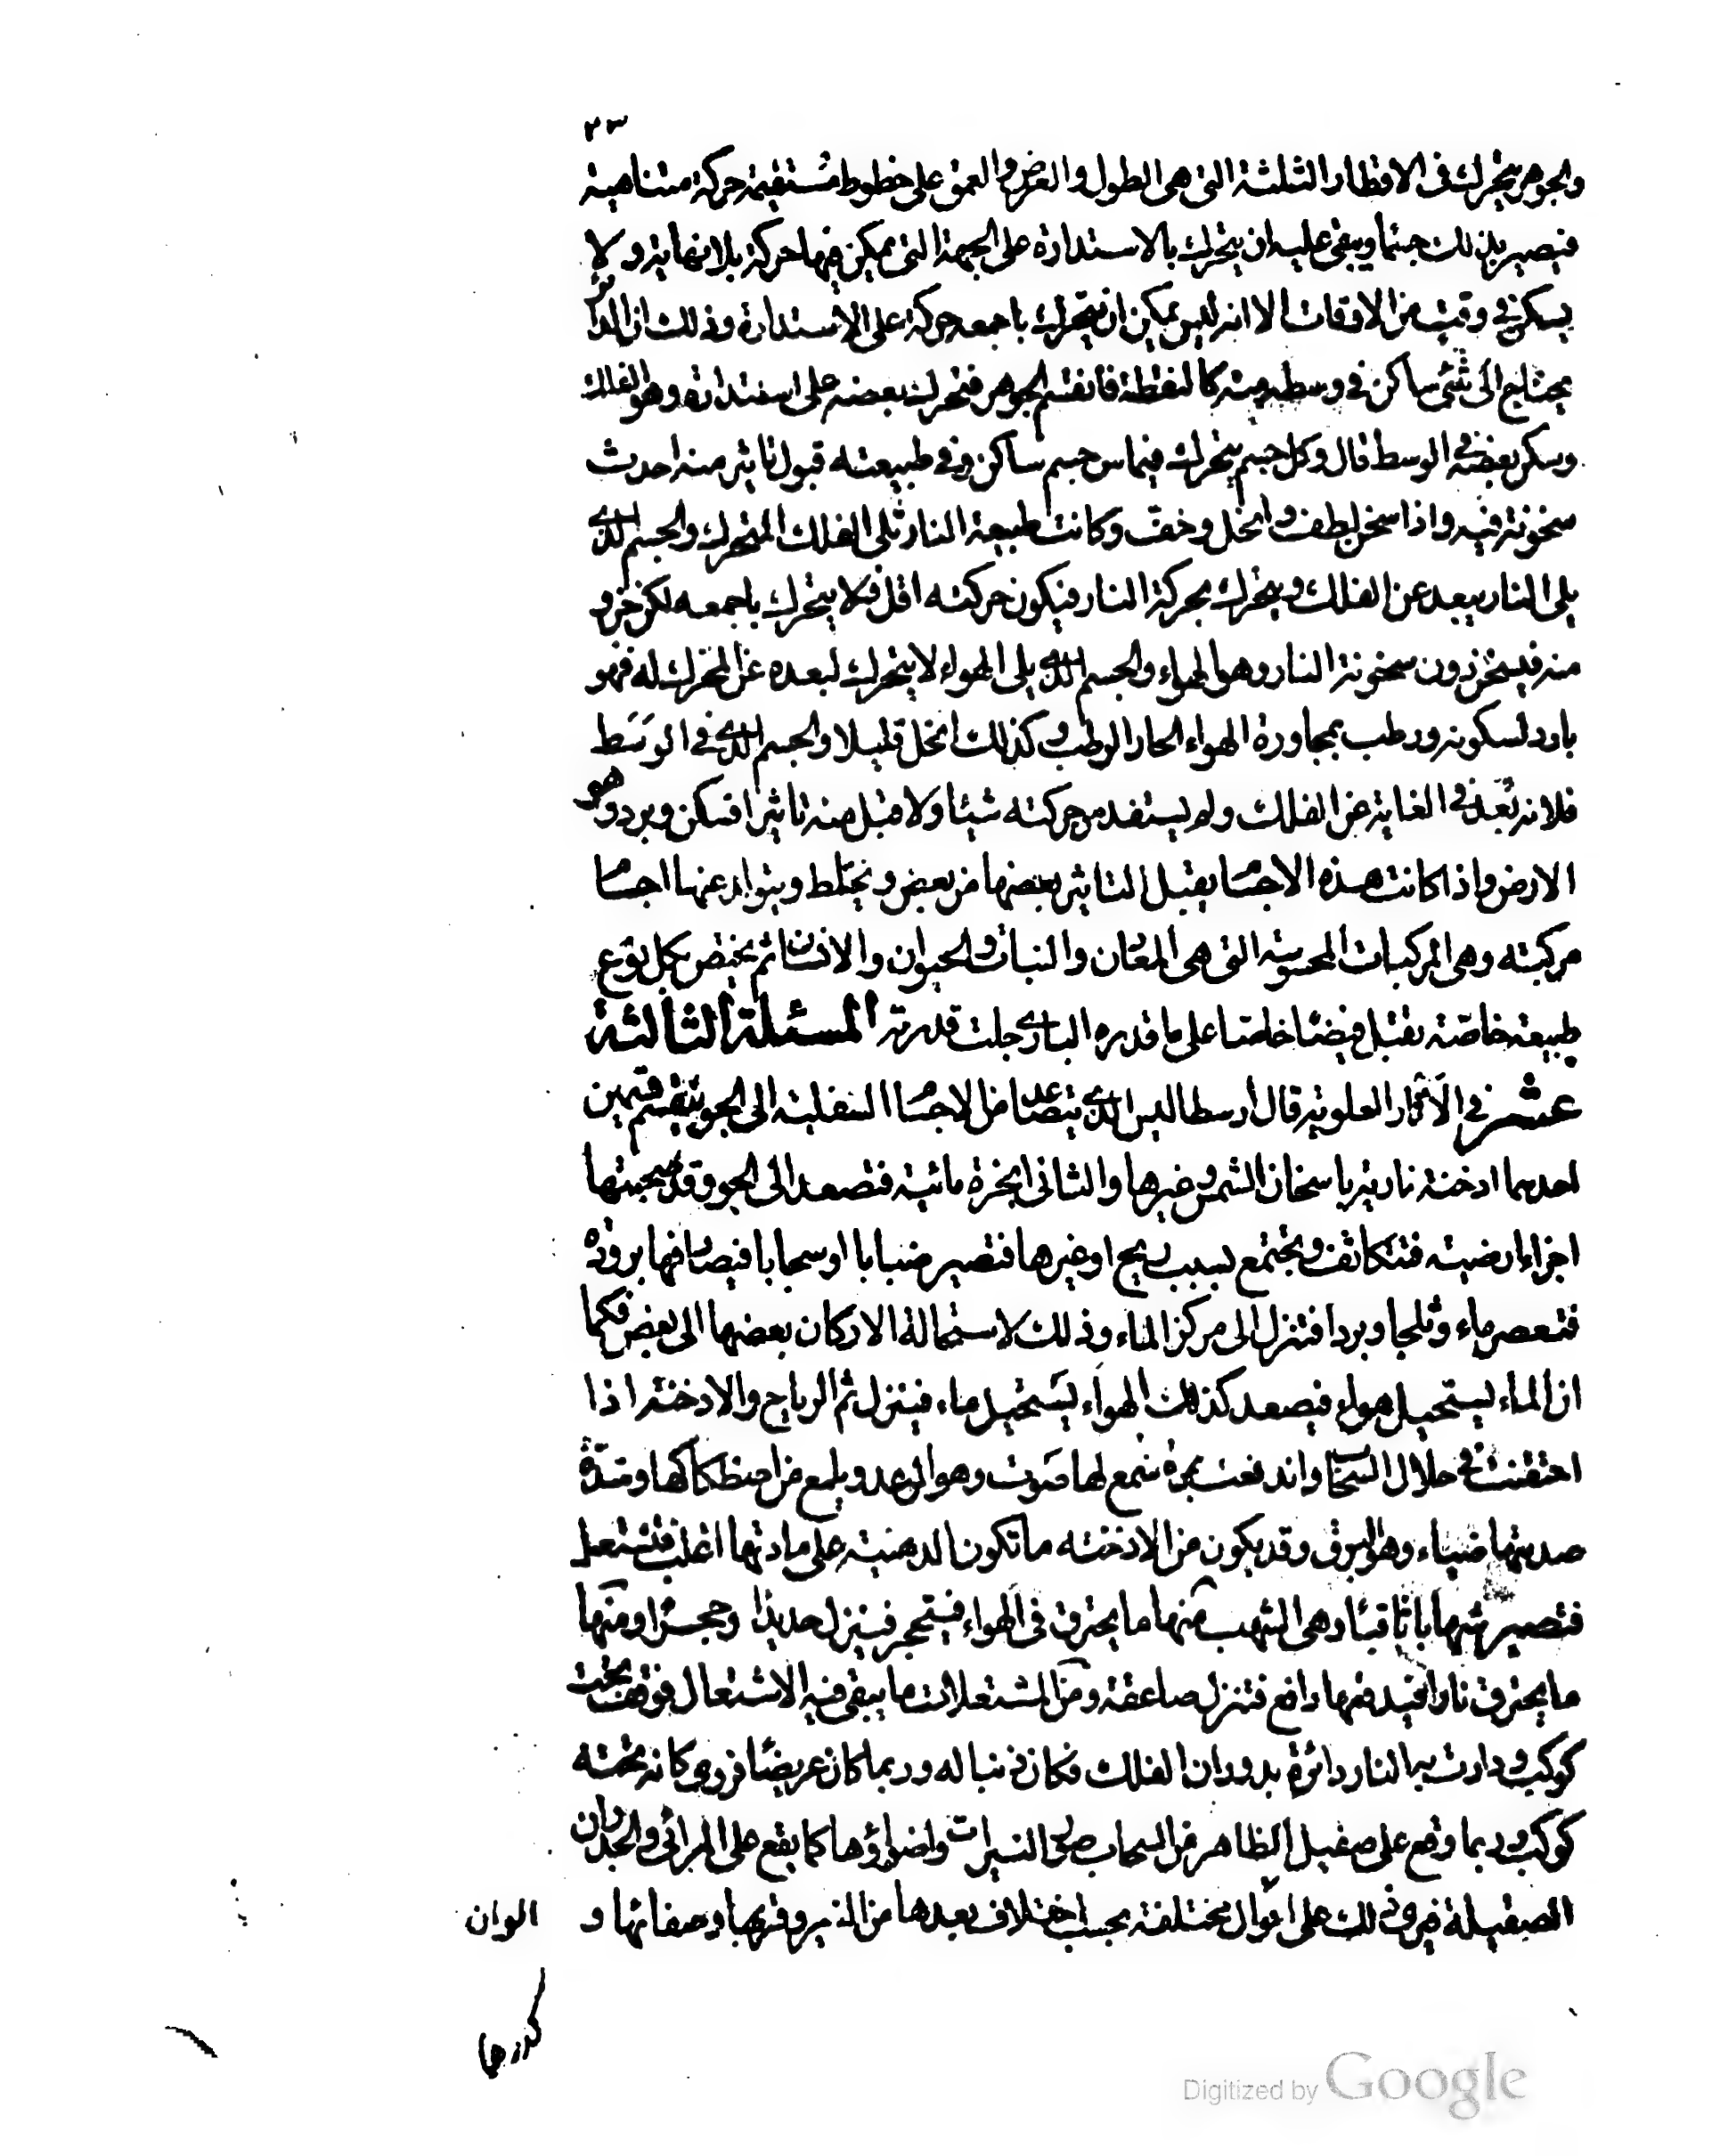 ٢٣
والجوهر يتحرك فى الاقطار الثلثة التى هى الطول والعرض والعمق على خطوط مستقيمة حركة متناهية
فيصير بذلك جسما ويبقى عليه ان يتحرك بالاستدارة على الجهة التى يمكن فيها حركة بلا نهاية ولا
يسكن فى وقت من الاوقات الا انه ليس يمكن ان يتحرك باجمعه حركة على الاستدارة وذلك ان الدائر
يحتاج الى شئ ساكن فى وسط منه كالنقطة فانقسم الجوهر فتحرك بعضه على استدارة وهو الفلك
وسكن بعضه فى الوسط قال وكل جسم يتحرك فيماس جسم ساكن وفى طبيعته قبول تاثير منه احدث
سخونة فيه واذا سخن لطف وانحل وخف وكانت طبيعة النار تلى الفلك المتحرك والجسم الذى
يلى النار يبعد عن الفلك ويتحرك بحركة النار فيكون حركته اقل فلا يتحرك باجمعه لكن جزو
منه فيسخن دون سخونة النار وهو الهواء والجسم الذى يلى الهواء لا يتحرك لبعده عن المحرك له فهو
بارد لسكونه ورطب بمجاورة الهواء الحار الرطب وكذلك انحل قليلا والجسم الذى فى الوسط
فلانه بعد فى الغاية عن الفلك ولم يستفد من حركته شيئا ولا قبل منه تاثيرا فسكن وبرد وهو
الارض واذا كانت هذه الاجسا يقبل التاثير بعضها من بعض ويختلط ويتولد عنها اجسا
مركبته وهى المركبات المحسوسة التى هى المعان والنبات والحيوان والانسان ثم يختص بكل نوع
طبيعة خاصة تقبل فيضا خاصا على ما قدره البارى جلت قدرته المسئلة الثالثة
عشر فى الآثار العلوية قال ارسطاليس الذى يتصاعد من الاجسا السفلية الى الجو ينقسم قسمين
احدهما ادخنة نارية باسخان الشمس وغيرها والثانى ابخرة مائية فتصعد الى الجو وقد صحبتها
اجزاء ارضية فتتكاثف وتجتمع بسبب ريح او غيرها فتصير ضبابا او سحابا فيصا فها برودة
فتعصر ماء وثلجا وبردا فتنزل الى مركز الماء وذلك لاستحالة الاركان بعضها الى بعض فكما
ان الماء يستحيل هواء فيصعد كذلك الهواء يستحيل ماء فينزل ثم الرياح والادخنة اذا
احتقنت فى خلال السحا واندفعت بمرة سمع لها صوت وهو الرعد ويلمع من اصطكاكها وشدة
صدمتها ضياء وهو البرق وقد يكون من الادخنة ما تكون الدهنية على مادتها اغلب فتشتعل
فتصير شهابا ثاقبا وهى الشهب منها ما يحترق فى الهواء فيتحجر فينزل حديدا وحجرا ومنها
ما يحترق نارا فيدفعها دافع فتنزل صاعقة ومن المشتعلات ما يبقى فيه الاشتعال فوقفت تحت
كوكب ودارت به النار دائرة بدوران الفلك فكان ذنبا له وربما كان عريضا فروى كانه لحية
كوكب وربما وقع على صقيل الظاهر من السحاب صور النيرات واضواؤها كما يقع على المرائى والجدران
الصقيلة فيرى ذلك على احوال مختلفة بحسب اختلاف بعدها من النير وقربها وصفائها و
الوان
كدرها
Digitized by Google